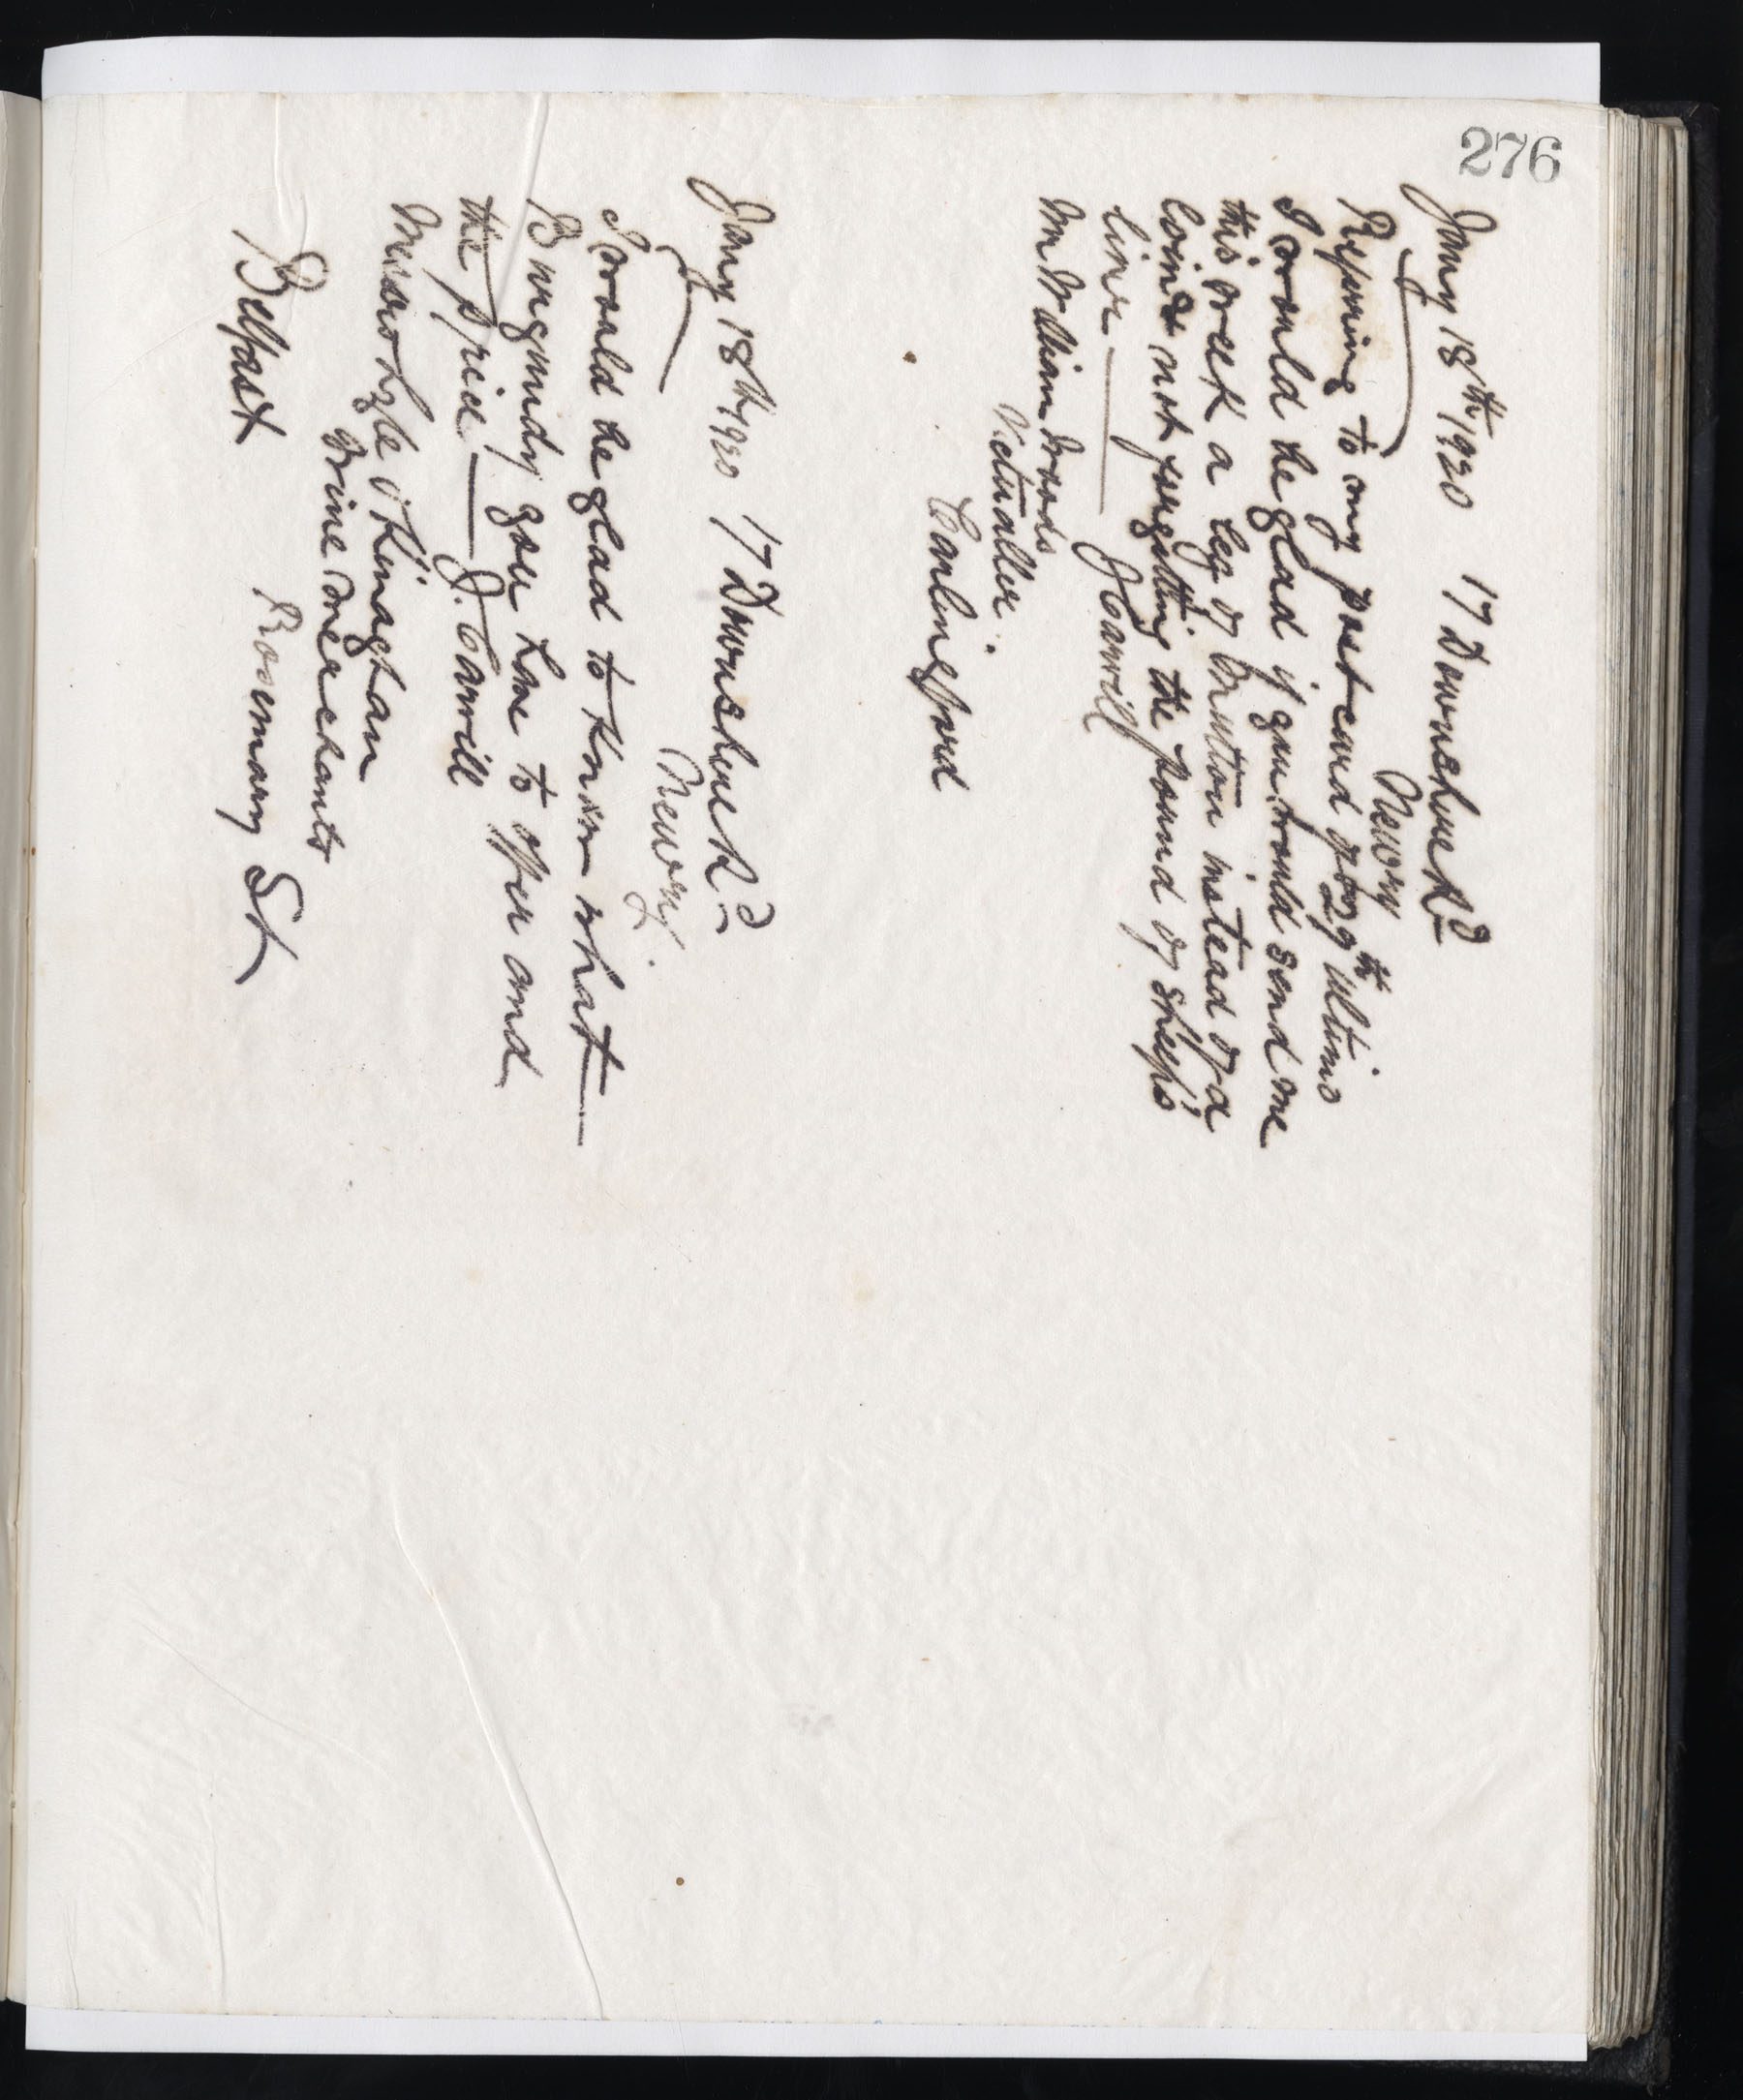 276
Jany 18th 1920 17 Downshire Rd
Newry
Refering to my postcard of 29th ultimo
I would be glad if you would send me
this week a leg of Mutton instead of a
loin & not forgetting the pound of sheep's
liver — J Carvill
Mr William Woods
Victualler
Carlingford
Jany 18th 1920 17 Downshire Rd
Newry
I would be glad to know what
Burgundy you have to offer and
the price — J. Carvill
Messrs Lyle & Kinaghan
Wine Merchants
Rosemary St
Belfast